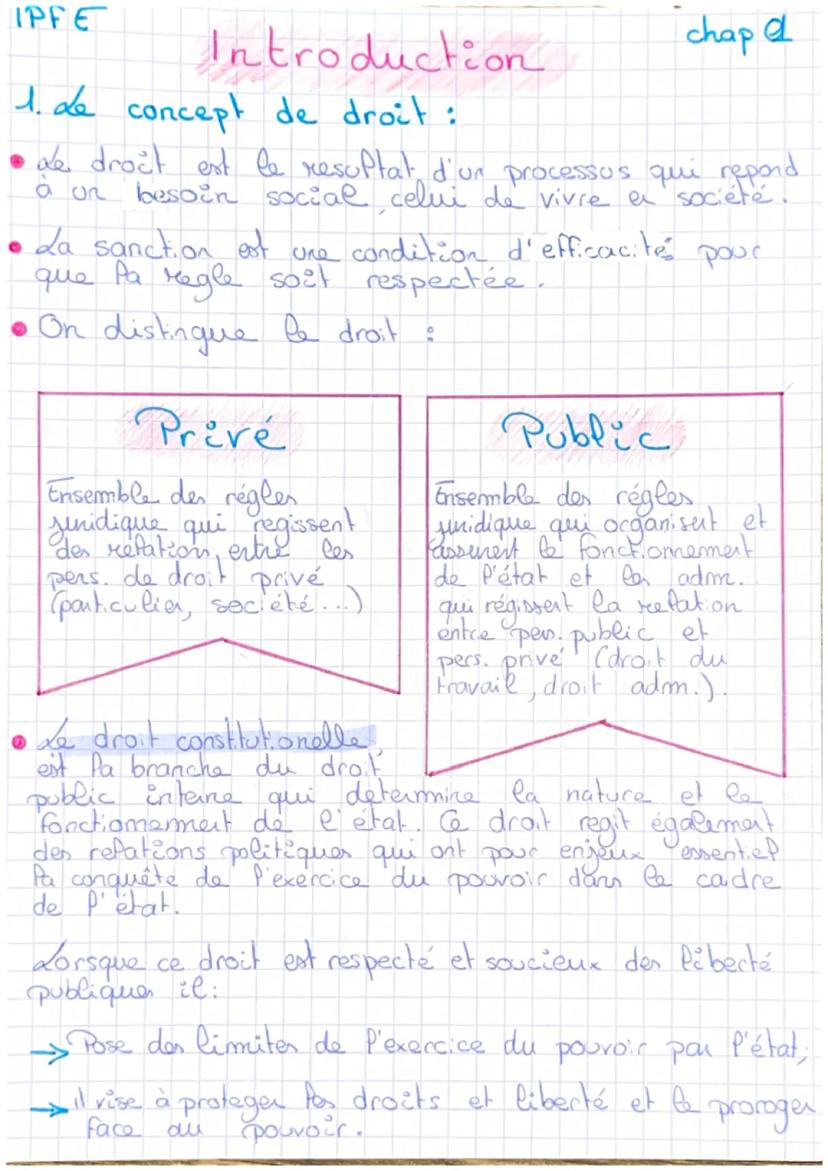 IPFE
chap 1
Introduction
1. Le concept de droit :
Le droit est le resultat d'un processus qui repond
à un besoin social, celui de vivre en société.
La sanction est une condition d'efficacités pour
que la regle soit respectée.
On distingue le droit :
Privé
Ensemmble des régles
juridique qui regissent
des relation, entre les
pers. de droit privé
(particulier, société...)
Public
Ensemble des régles
juridique qui organisent et
assurent le fonctionnement
de l'état et les adm.
qui régissent la relation
entre pers. public et
pers. privé (droit du
travail, droit adm.).
Le droit constitutionelle
est la branche du droit
public interne qui determine la nature et le
fonctionnement de l'état. Ce droit regit également
des relations politiques qui ont pour enjeux essentiel
la conquête de l'exercice du pouvoir dans le cadre
de l'état.
Lorsque ce droit est respecté et soucieux des liberté
publiques il:
→ Pose des limites de l'exercice du pouvoir par l'état;
→ il vise à proteger les droits et liberté et le proroger
face au pouvoir.